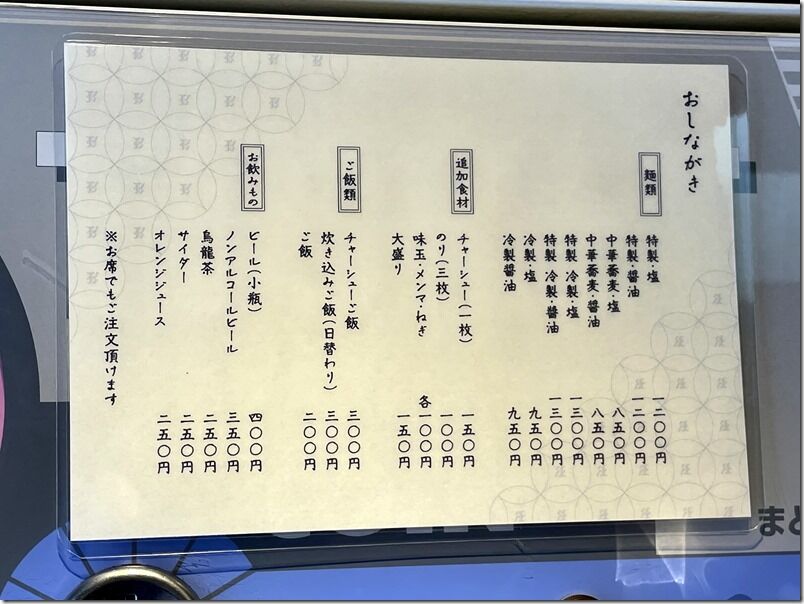 おしながき
麺類
特製・塩 一二〇〇円
特製・醤油 一二〇〇円
中華蕎麦・塩 八五〇円
中華蕎麦・醤油 八五〇円
特製 冷製・塩 一三〇〇円
特製 冷製・醤油 一三〇〇円
冷製・塩 九五〇円
冷製・醤油 九五〇円
追加食材
チャーシュー(一枚) 一五〇円
のり(三枚) 一〇〇円
味玉・メンマ・ねぎ 各一〇〇円
大盛り 一五〇円
ご飯類
チャーシューご飯 三〇〇円
炊き込みご飯(日替わり) 三〇〇円
ご飯 二〇〇円
お飲みもの
ビール(小瓶) 四〇〇円
ノンアルコールビール 三五〇円
烏龍茶 二五〇円
サイダー 二五〇円
オレンジジュース 二五〇円
※お席でもご注文頂けます